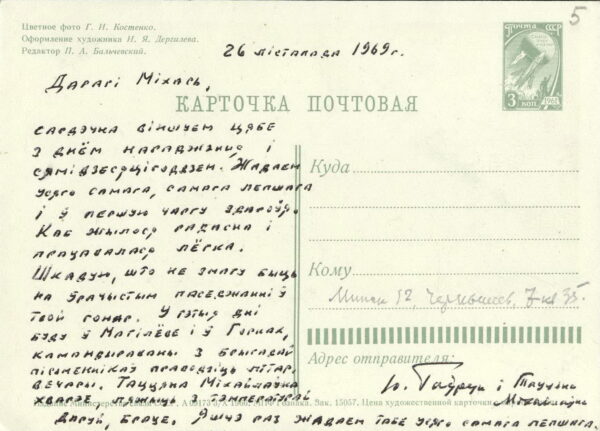 Цветное фото Г. И. Костенко.
Оформление художника И. Я. Дергилева.
Редактор П. А. Бальчевский.
5
ПОЧТА СССР
3 КОП.
1961
26 лістапада 1969 г.
Дарагі Міхась,
КАРТОЧКА ПОЧТОВАЯ
сардэчна віншуем цябе
з днём нараджэння і
сямідзесяцігоддзем. Жадаем
усяго самага, самага лепшага
і ў першую чаргу здароўя.
Каб жылося радасна і
працавалася лёгка.
Шкадую, што не змагу быць
на ўрачыстым пасяджэнні ў
твой гонар. У гэтыя дні
буду ў Магілёве і ў Горках,
камандзіраваны з брыгадай
пісьменнікаў праводзіць літар.
вечары. Таццяна Міхайлаўна
хварэе, ляжыць з тэмпературай
Даруй, браце. Яшчэ раз жадаем табе усяго самага лепшага.
Куда
Кому
Минск 12, Чернышевск. 7 кв 35.
Адрес отправителя:
Ю. Гаўрук і Таццяна
Міхайлаўна
Издание Министерства связи СССР. А 03173 1969. МПФ Гознака. Зак. 15057. Цена художественной карточки